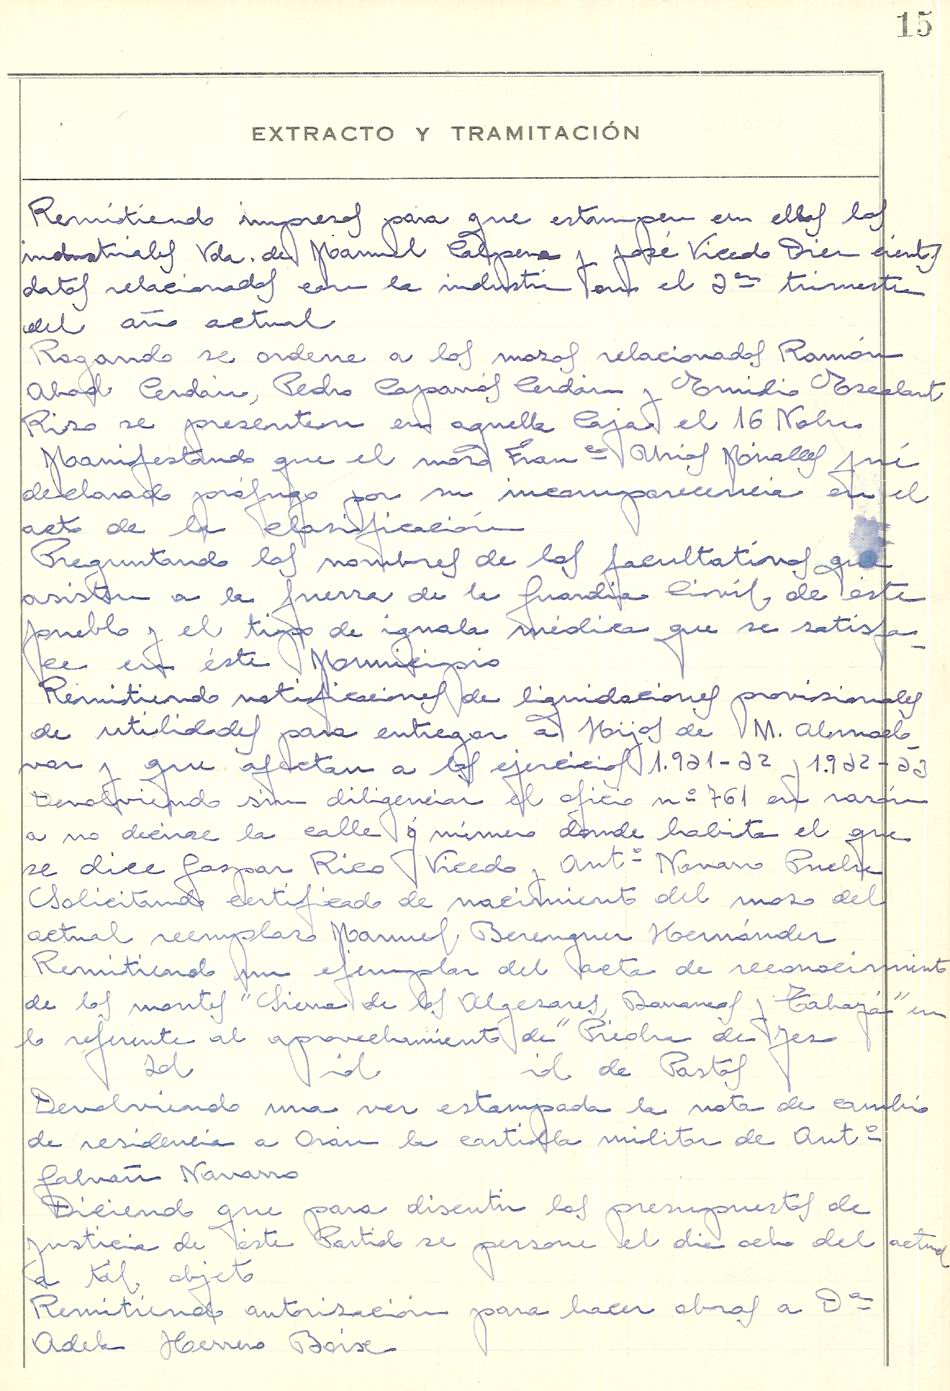 15
EXTRACTO Y TRAMITACIÓN
Remitiendo impresos para que estampen en ellos los
industriales Vda. de Manuel Calpena y José Vicedo Diez ciertos
datos relacionados con la industria en el 2º trimestre
del año actual
Rogando se ordene a los mozos relacionados Ramón
Abad Cerdán, Pedro Caparrós Cerdán y Emidio Escolant
Rizo se presenten en aquella Caja el 16 Nobre
Manifestando que el mozo Franco Urios Miralles fué
declarado prófugo por su incomparecencia en el
acto de la clasificación
Preguntando los nombres de los facultativos que
asisten a la fuerza de la Guardia Civil, de éste
pueblo y el tipo de iguala médica que se satisfa-
ce en éste Municipio
Remitiendo notificaciones de liquidaciones provisionales
de utilidades para entregar a Hijos de M. Almode-
var y que afectan a los ejercicios 1.921-22 y 1.922-23
Devolviendo sin diligenciar el oficio nº 761 en razón
a no decirse la calle y número donde habita el que
se dice Gaspar Rico Vicedo y Antº Navarro Puche
Solicitando certificado de nacimiento del mozo del
actual reemplazo Manuel Berenguer Hernández
Remitiendo un ejemplar del acta de reconocimiento
de los montes "Sierra de los Algezares, Barrancos y Tabayá" en
lo referente al aprovechamiento de "Piedra de Yeso
Id id id de Pastos
Devolviendo una vez estampada la nota de cambio
de residencia a Orán la cartilla militar de Antº
Galvañ Navarro
Diciendo que para discutir los presupuestos de
justicia de éste Partido se persone el dia ocho del actual
a tal objeto
Remitiendo autorización para hacer obras a Dª
Adela Herrero Boix